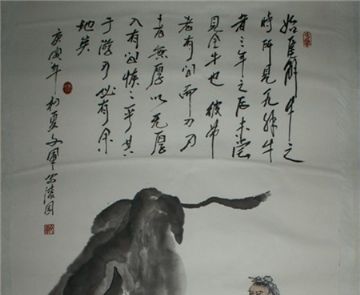 始臣解牛之
时所见无非牛
者三年之后未尝
见全牛也彼节
者有间而刀刃
者无厚以无厚
入有间恢恢乎其
于游刃必有余
地矣
庚寅年初夏